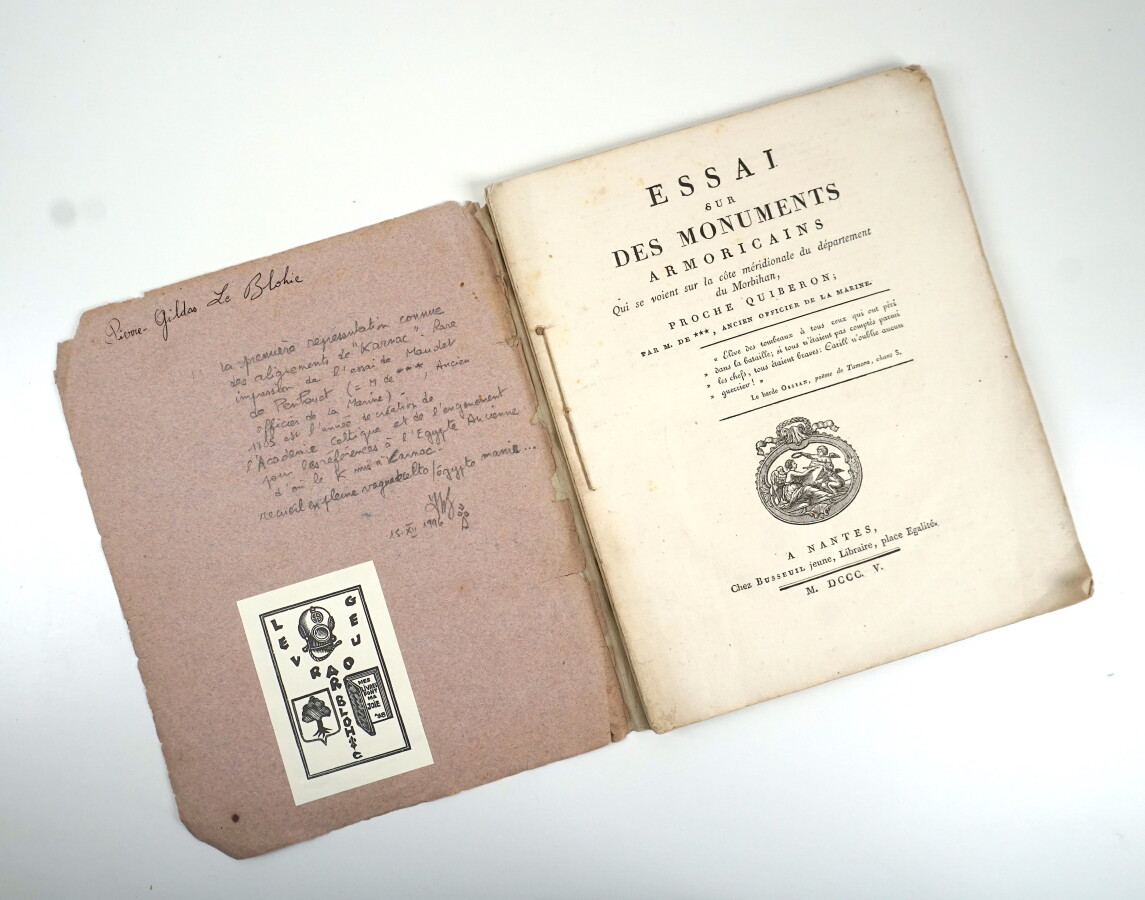 Pierre-Gildas Le Blohic
La première représentation connue
des alignements de "Karnac". Rare
impression de l'essai de Maudet
de Penhouet (= M de ***, Ancien
officier de la Marine) -
est l'année de création de
l'Académie Celtique et de l'engouement
pour les références à l'Egypte Ancienne
d'où le K mis à Karnac.
recueil en pleine vague celto/égypto manie...
15. XII 1996
LEVRAOU
GEU
AR BLOHIC
MES
LIVRES
SONT
MA
JOIE
ESSAI
SUR
DES MONUMENTS
ARMORICAINS
Qui se voient sur la côte méridionale du département
du Morbihan,
PROCHE QUIBERON;
PAR M. DE ***, ANCIEN OFFICIER DE LA MARINE.
« Elève des tombeaux à tous ceux qui ont péri
» dans la bataille; si tous n'étaient pas comptés parmi
» les chefs, tous étaient braves: Carill n'oublie aucun
» guerrier! »
Le barde OSSIAN, poème de Tamora, chant 3.
A NANTES,
Chez BUSSEUIL jeune, Libraire, place Egalité.
M. DCCC. V.